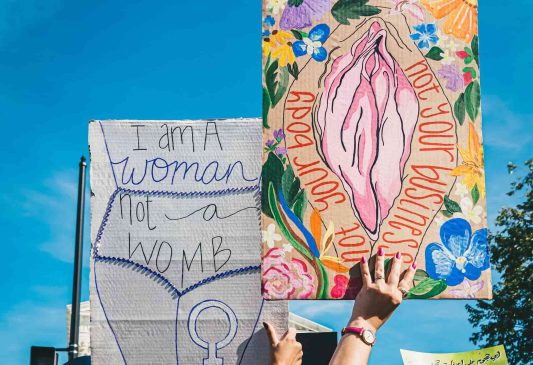 I am A
woman
not a
WOMB
not your body
not your business